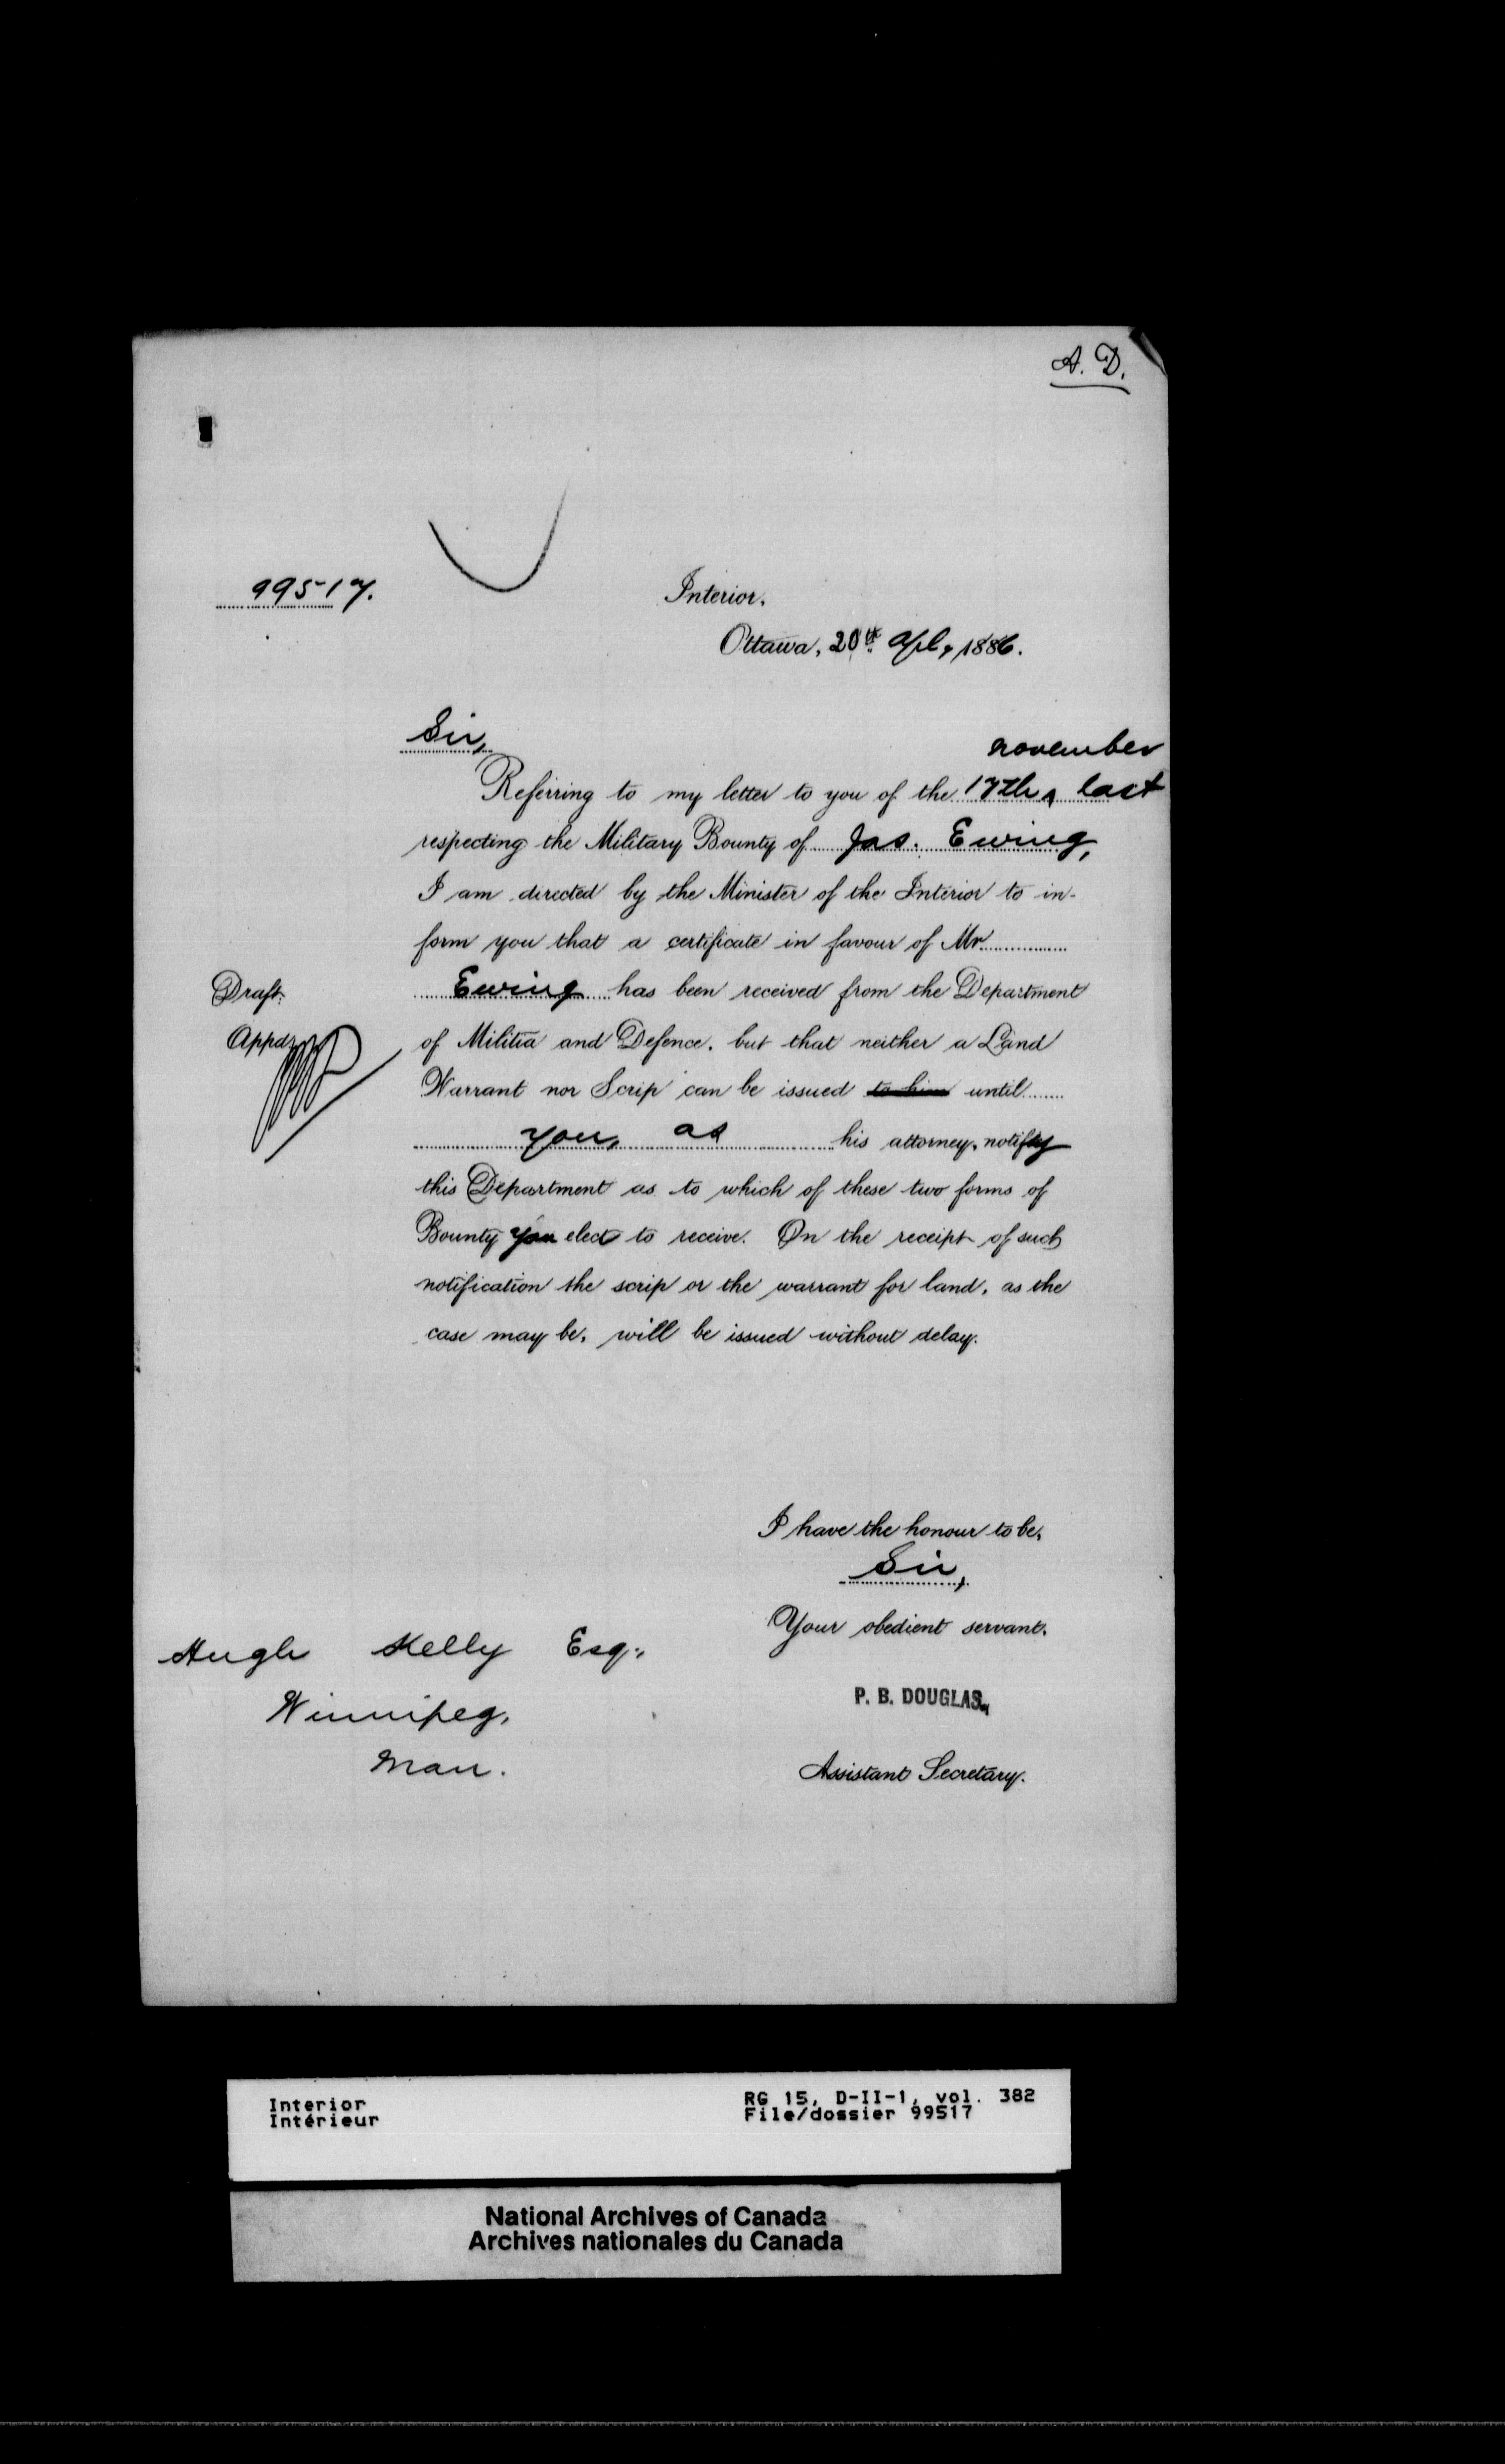 A. D.
99517.
Interior.
Ottawa, 20th Apl, 1886.
Sir,
november
Referring to my letter to you of the 17th last
respecting the Military Bounty of Jas. Ewing,
I am directed by the Minister of the Interior to in-
form you that a certificate in favour of Mr
Ewing has been received from the Department
Draft.
of Militia and Defence, but that neither a Land
Appd
Warrant nor Scrip can be issued to him until
you, as his attorney, notify
this Department as to which of these two forms of
Bounty you elect to receive. On the receipt of such
notification the scrip or the warrant for land, as the
case may be, will be issued without delay.
I have the honour to be,
Sir,
Your obedient servant,
Hugh Kelly Esq.,
Winnipeg,
Man.
P. B. DOUGLAS.
Assistant Secretary.
Interior
Intérieur
RG 15, D-II-1, vol. 382
File/dossier 99517
National Archives of Canada
Archives nationales du Canada